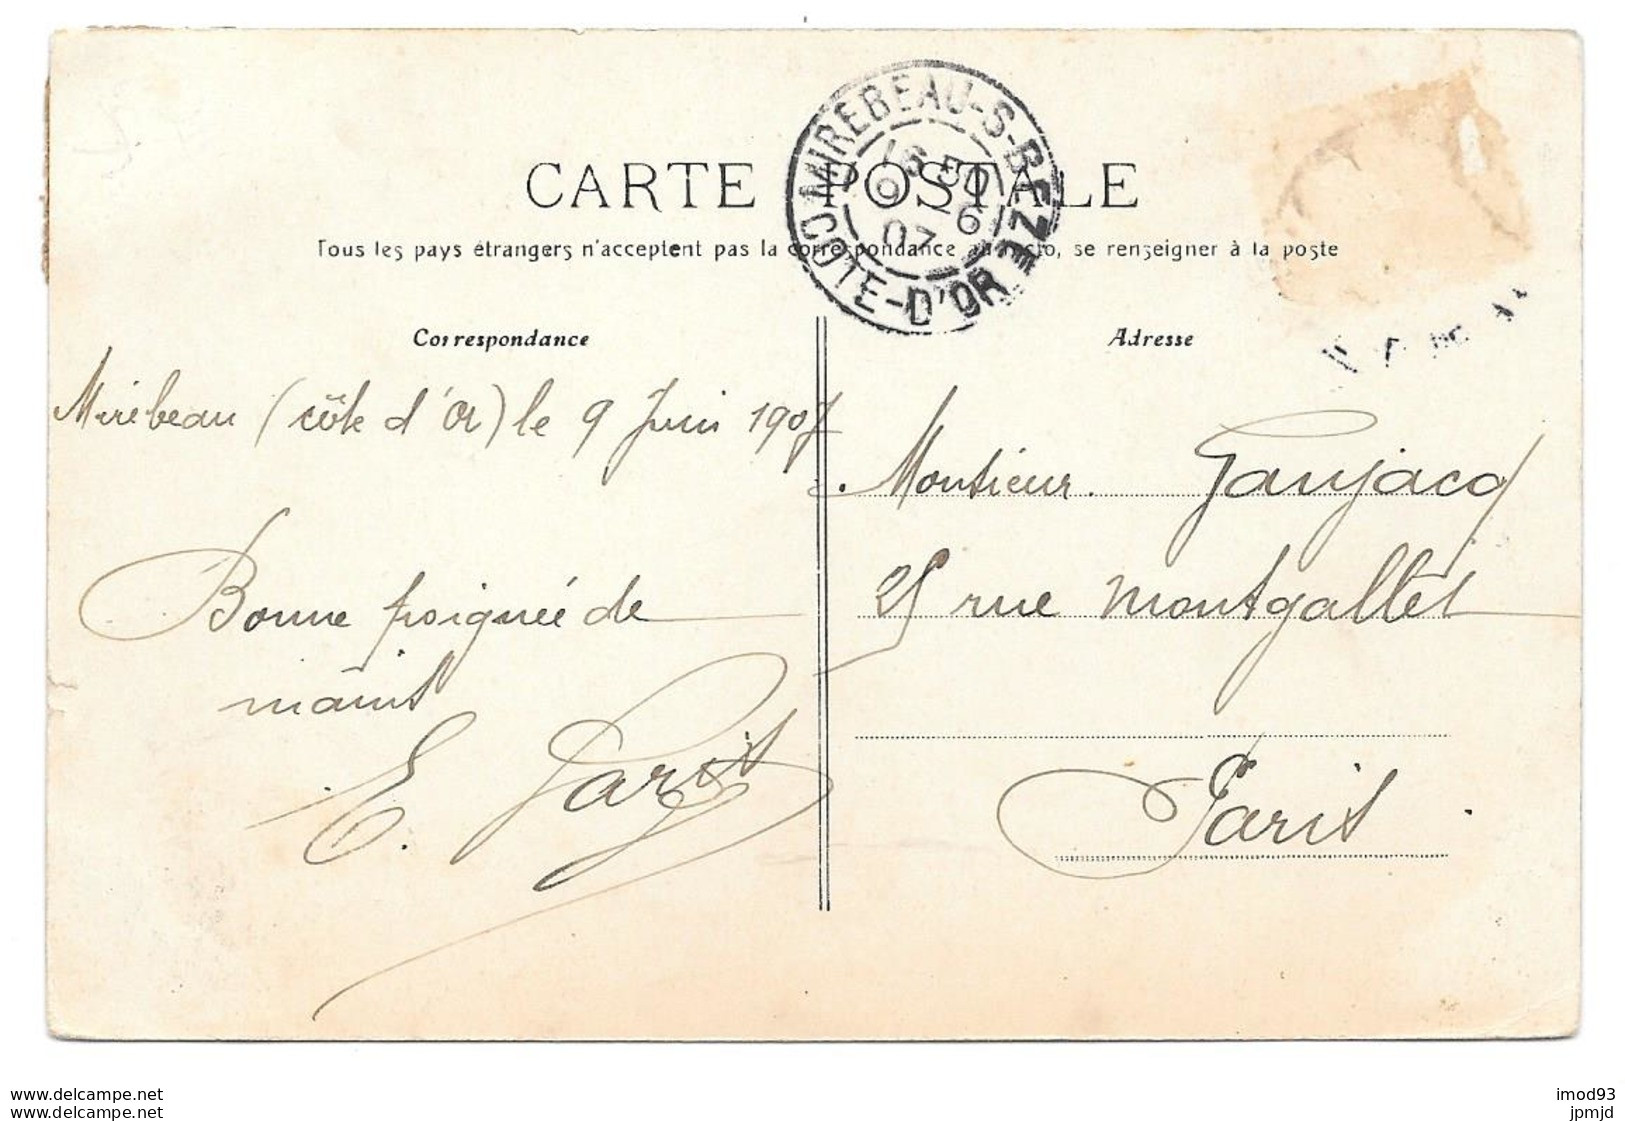 CARTE POSTALE
Tous les pays étrangers n'acceptent pas la correspondance au recto, se renseigner à la poste
MIREBEAU-S-BEZE
16 50
9 -6
07
COTE-D'OR
Correspondance
Mirebeau (côte d'Or) le 9 Juin 1907
Bonne poignée de
maint
E. Paris
Adresse
Monsieur. Gaujacq
25 rue Montgallet
Paris.
delcampe.net
delcampe.net
imod93
jpmjd